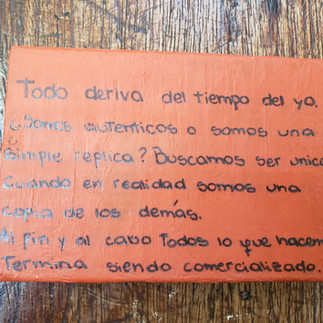 Todo deriva del tiempo del yo.
¿Somos autenticos o somos una
simple replica? Buscamos ser unico
cuando en realidad somos una
copia de los demás.
Al fin y al cabo Todos lo que hacem
Termina siendo comercializado.